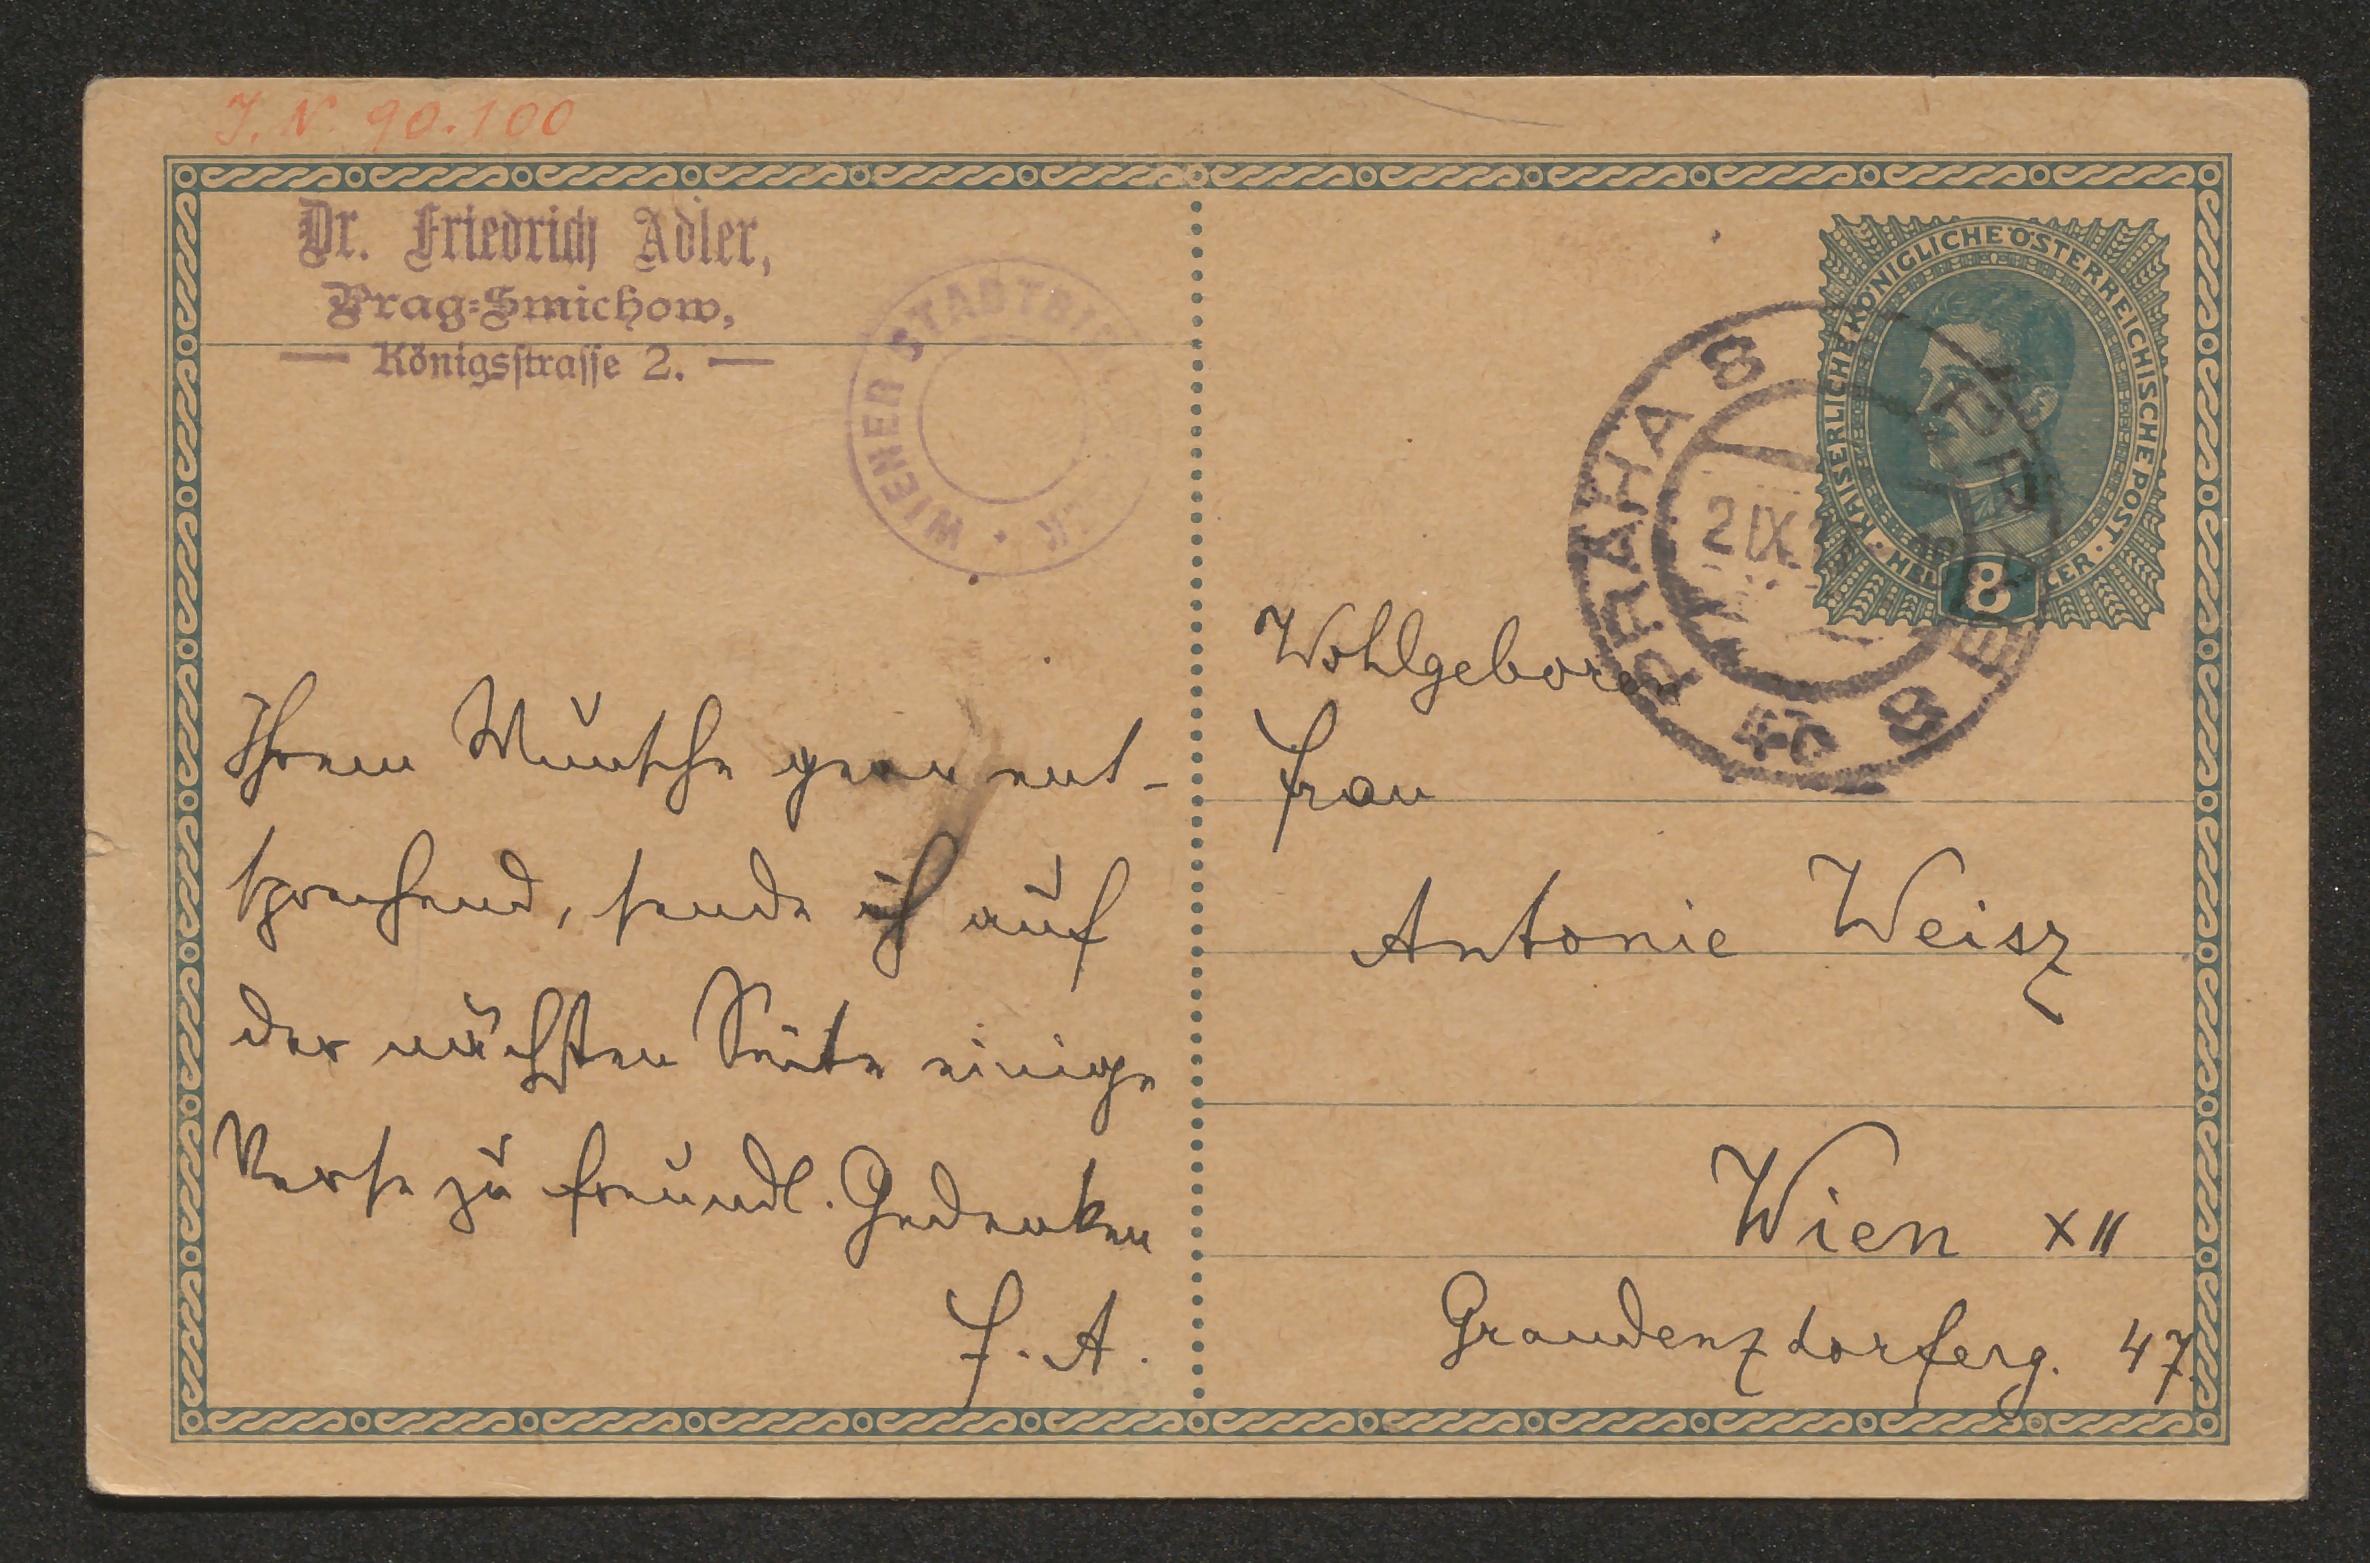 J. N. 90.100
Dr. Friedrich Adler,
Prag-Smichow,
— Königsstrasse 2. —
WIENER STADTBI EK
KAISERLICHE KÖNIGLICHE ÖSTERREICHISCHE POST
8
PRAHA 8
2 IX
8
Ihrem Wunsche gern ent-
sprechend, sende ich auf
der nächsten Seite einige
Verse zu freundl. Gedenken
F. A.
Wohlgeboren
Frau
Antonie Weisz
Wien XII
Graudenzdorferg. 47.